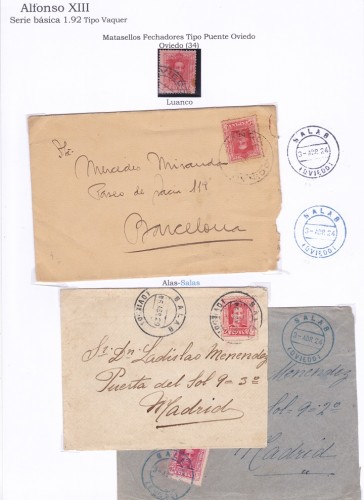 Alfonso XIII
Serie básica 1.92 Tipo Vaquer
Matasellos Fechadores Tipo Puente Oviedo
Oviedo (34)
Luanco
Mercedes Miranda
Paseo de
Barcelona
SALAS
3-ABR 24
(OVIEDO)
SALAS
3-ABR 24
(OVIEDO)
Alas-Salas
SALAS
SALAS
Sr. Dn. Ladislao Menendez
Puerta del Sol 9=3º
Madrid
SALAS
3-ABR 24
(OVIEDO)
Menendez
Sol 9=2º
Madrid